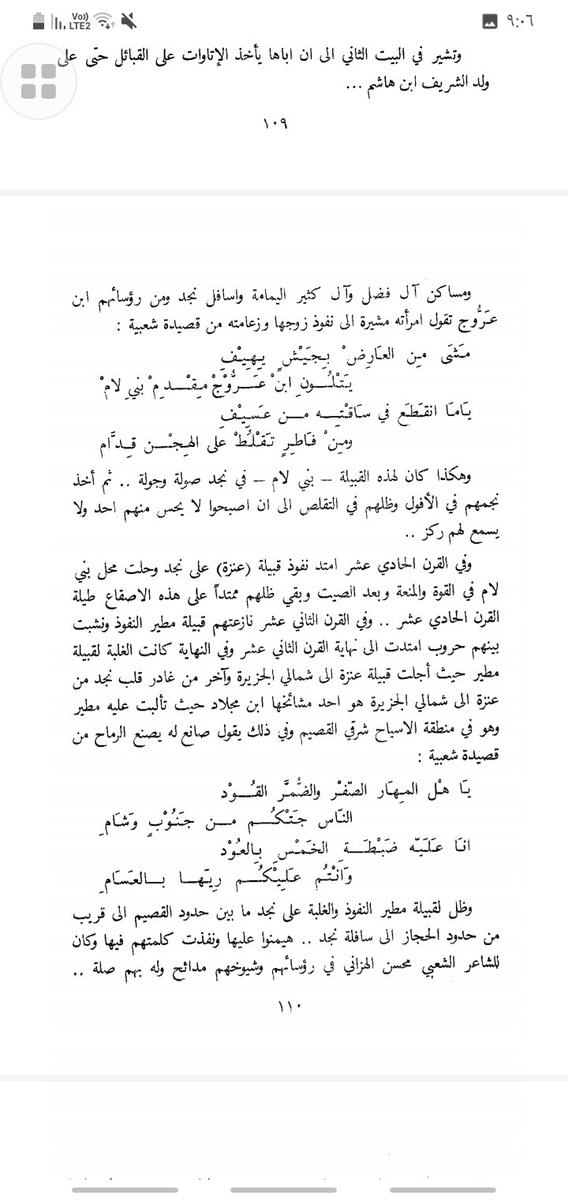 Vo)) LTE2
٩:٠٦
وتشير في البيت الثاني الى ان اباها يأخذ الإتاوات على القبائل حتّى على
ولد الشريف ابن هاشم ...
١٠٩
ومساكن آل فضل وآل كثير اليمامة واسافل نجد ومن رؤسائهم ابن
عَرُّوج تقول امرأته مشيرة الى نفوذ زوجها وزعامته من قصيدة شعبية :
مَشَى مِن العَارِضْ بِجَيْشٍ يِهِيْفِ
يَتْلُونِ ابنْ عَرُّوْجْ مِقْدِمْ بَنِي لامْ
يَامَا انقطَع في سَاقِتِه مِن عَسِيْفِ
ومِنْ فَاطِرٍ تَقْلُطْ على الهِجْن قِدَّام
وهكذا كان لهذه القبيلة – بني لام – في نجد صولة وجولة .. ثم أخذ
نجمهم في الأفول وظلهم في التقلص الى ان اصبحوا لا يحس منهم احد ولا
يسمع لهم ركز ..
وفي القرن الحادي عشر امتد نفوذ قبيلة (عنزة) على نجد وحلت محل بني
لام في القوة والمنعة وبعد الصيت وبقي ظلهم ممتداً على هذه الاصقاع طيلة
القرن الحادي عشر .. وفي القرن الثاني عشر نازعتهم قبيلة مطير النفوذ ونشبت
بينهم حروب امتدت الى نهاية القرن الثاني عشر وفي النهاية كانت الغلبة لقبيلة
مطير حيث أجلت قبيلة عنزة الى شمالي الجزيرة وآخر من غادر قلب نجد من
عنزة الى شمالي الجزيرة هو احد مشائخها ابن مجلاد حيث تألبت عليه مطير
وهو في منطقة الاسياح شرقي القصيم وفي ذلك يقول صانع له يصنع الرماح من
قصيدة شعبية :
يَا هْل المِهَار الصّفْر والضُّمَّر القُوْد
النَّاس جَتْكُم مِن جَنُوْبٍ وَشَامِ
انَا عَلَيَّه ضَبْطَة الخَمْسِ بِالعُوْد
وَانْتُم عَلَيْكُم رِيَّهَا بالعَسَامِ
وظل لقبيلة مطير النفوذ والغلبة على نجد ما بين حدود القصيم الى قريب
من حدود الحجاز الى سافلة نجد .. هيمنوا عليها ونفذت كلمتهم فيها وكان
للشاعر الشعبي محسن الهزاني في رؤسائهم وشيوخهم مدائح وله بهم صلة ..
١١٠